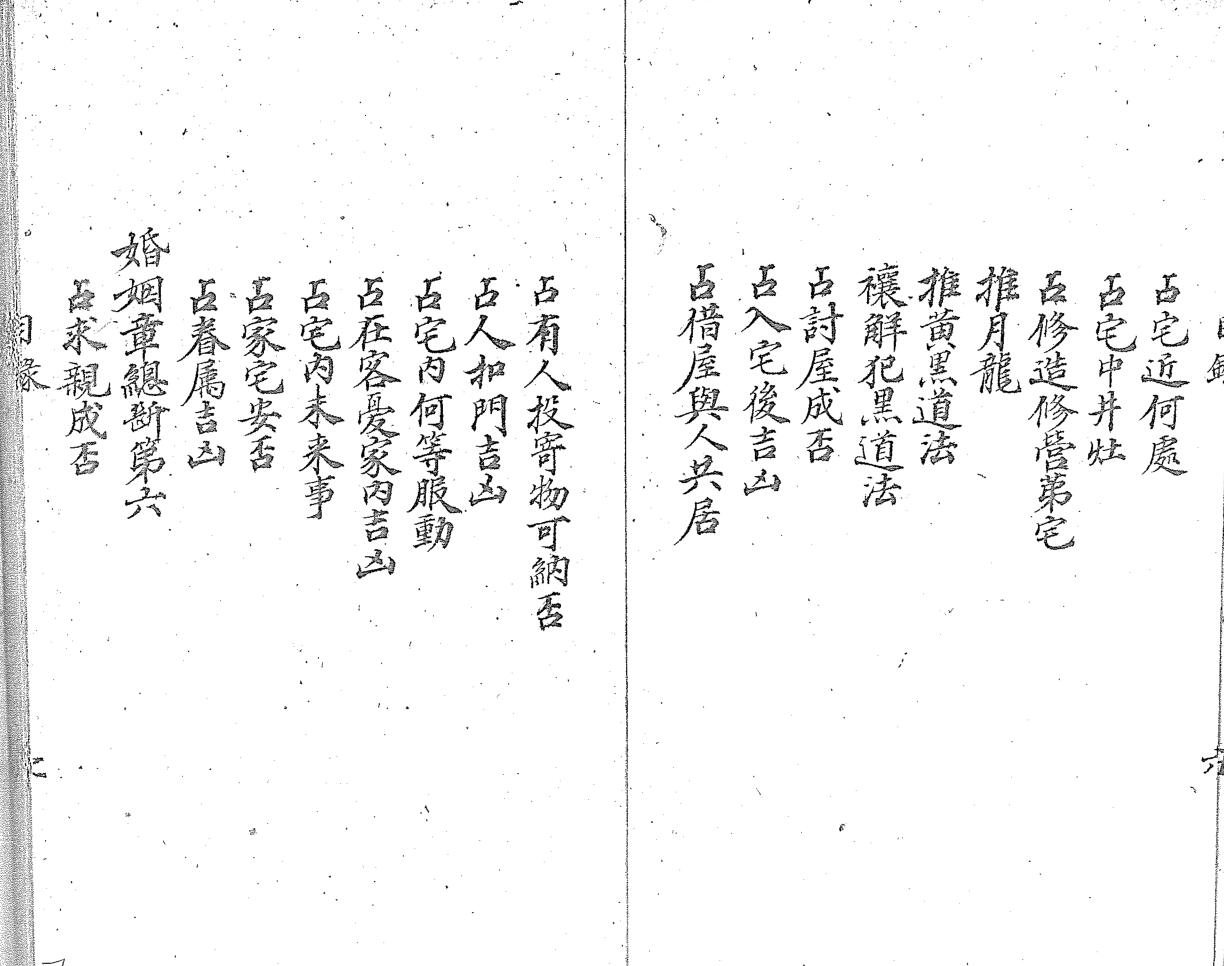 占宅近何處
占宅中井灶
占修造修營苐宅
推月龍
推黄黒道法
禳解犯黒道法
占討屋成否
占入宅後吉凶
占借屋與人共居
占有人投寄物可納否
占人扣門吉凶
占宅内何等服動
占在客憂家内吉凶
占宅内未来事
占家宅安否
占眷属吉凶
婚姻章總断第六
占求親成否